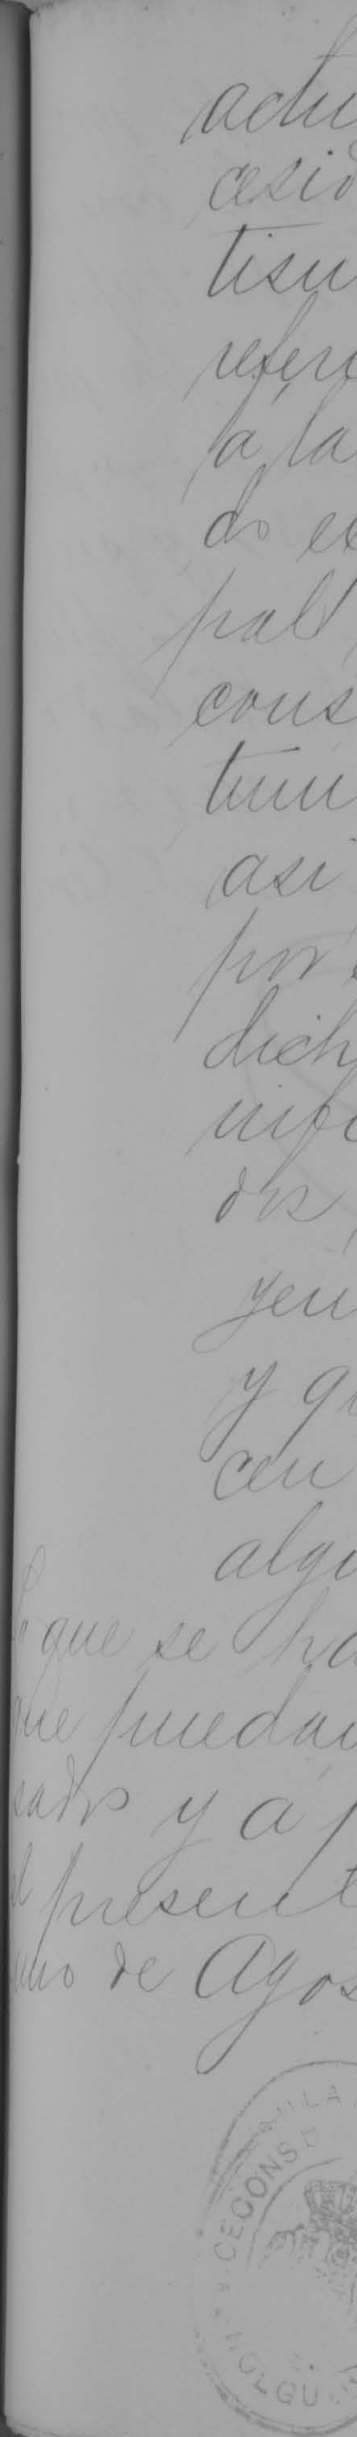 actu
cesid
tisu
referi
á la
do es
pal
cons
tum
asi
por
dich
nifi
dos
yen
y qu
cen
algu
que se ha
que puedan
sados y a p
el presente
uno de Agos
VICECONS
HOLGU